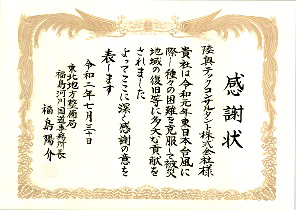 感謝状
陸奥テックコンサルタント株式会社様
貴社は令和元年東日本台風に
際し種々の困難を克服して被災
地域の復旧等に多大な貢献を
されました
よってここに深く感謝の意を
表します
令和二年七月三十日
東北地方整備局
福島河川国道事務所長
福島陽介